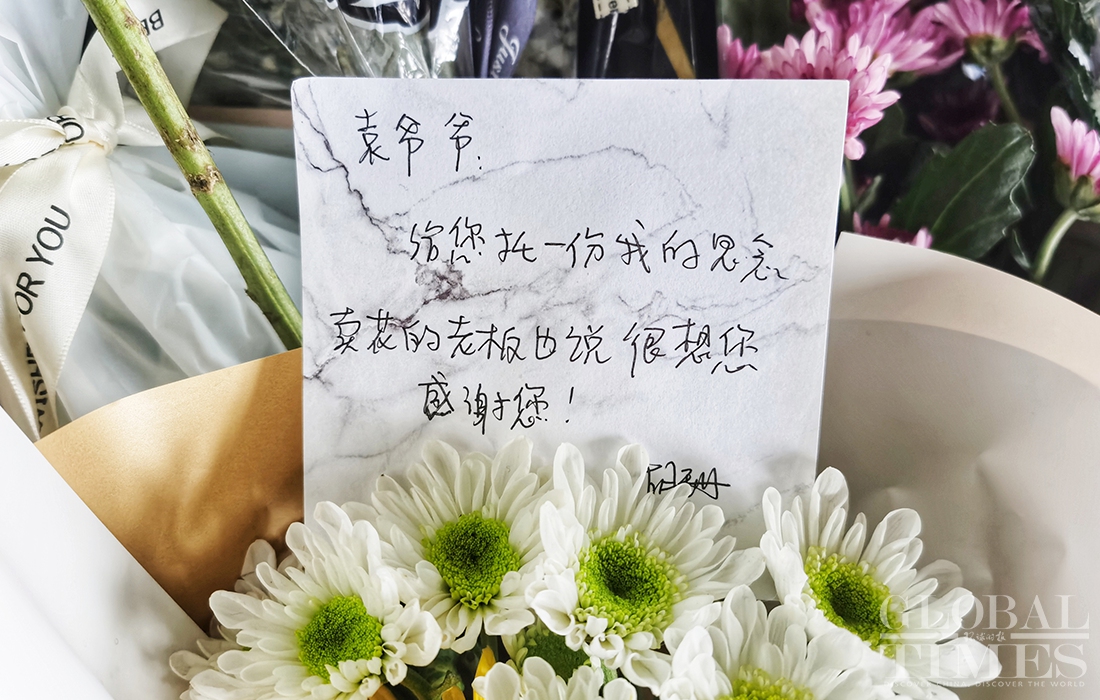 袁爷爷:
给您托一份我的思念
卖花的老板也说很想您
感谢您!
FOR YOU
GLOBAL
环球时报
TIMES
DISCOVER CHINA, DISCOVER THE WORLD